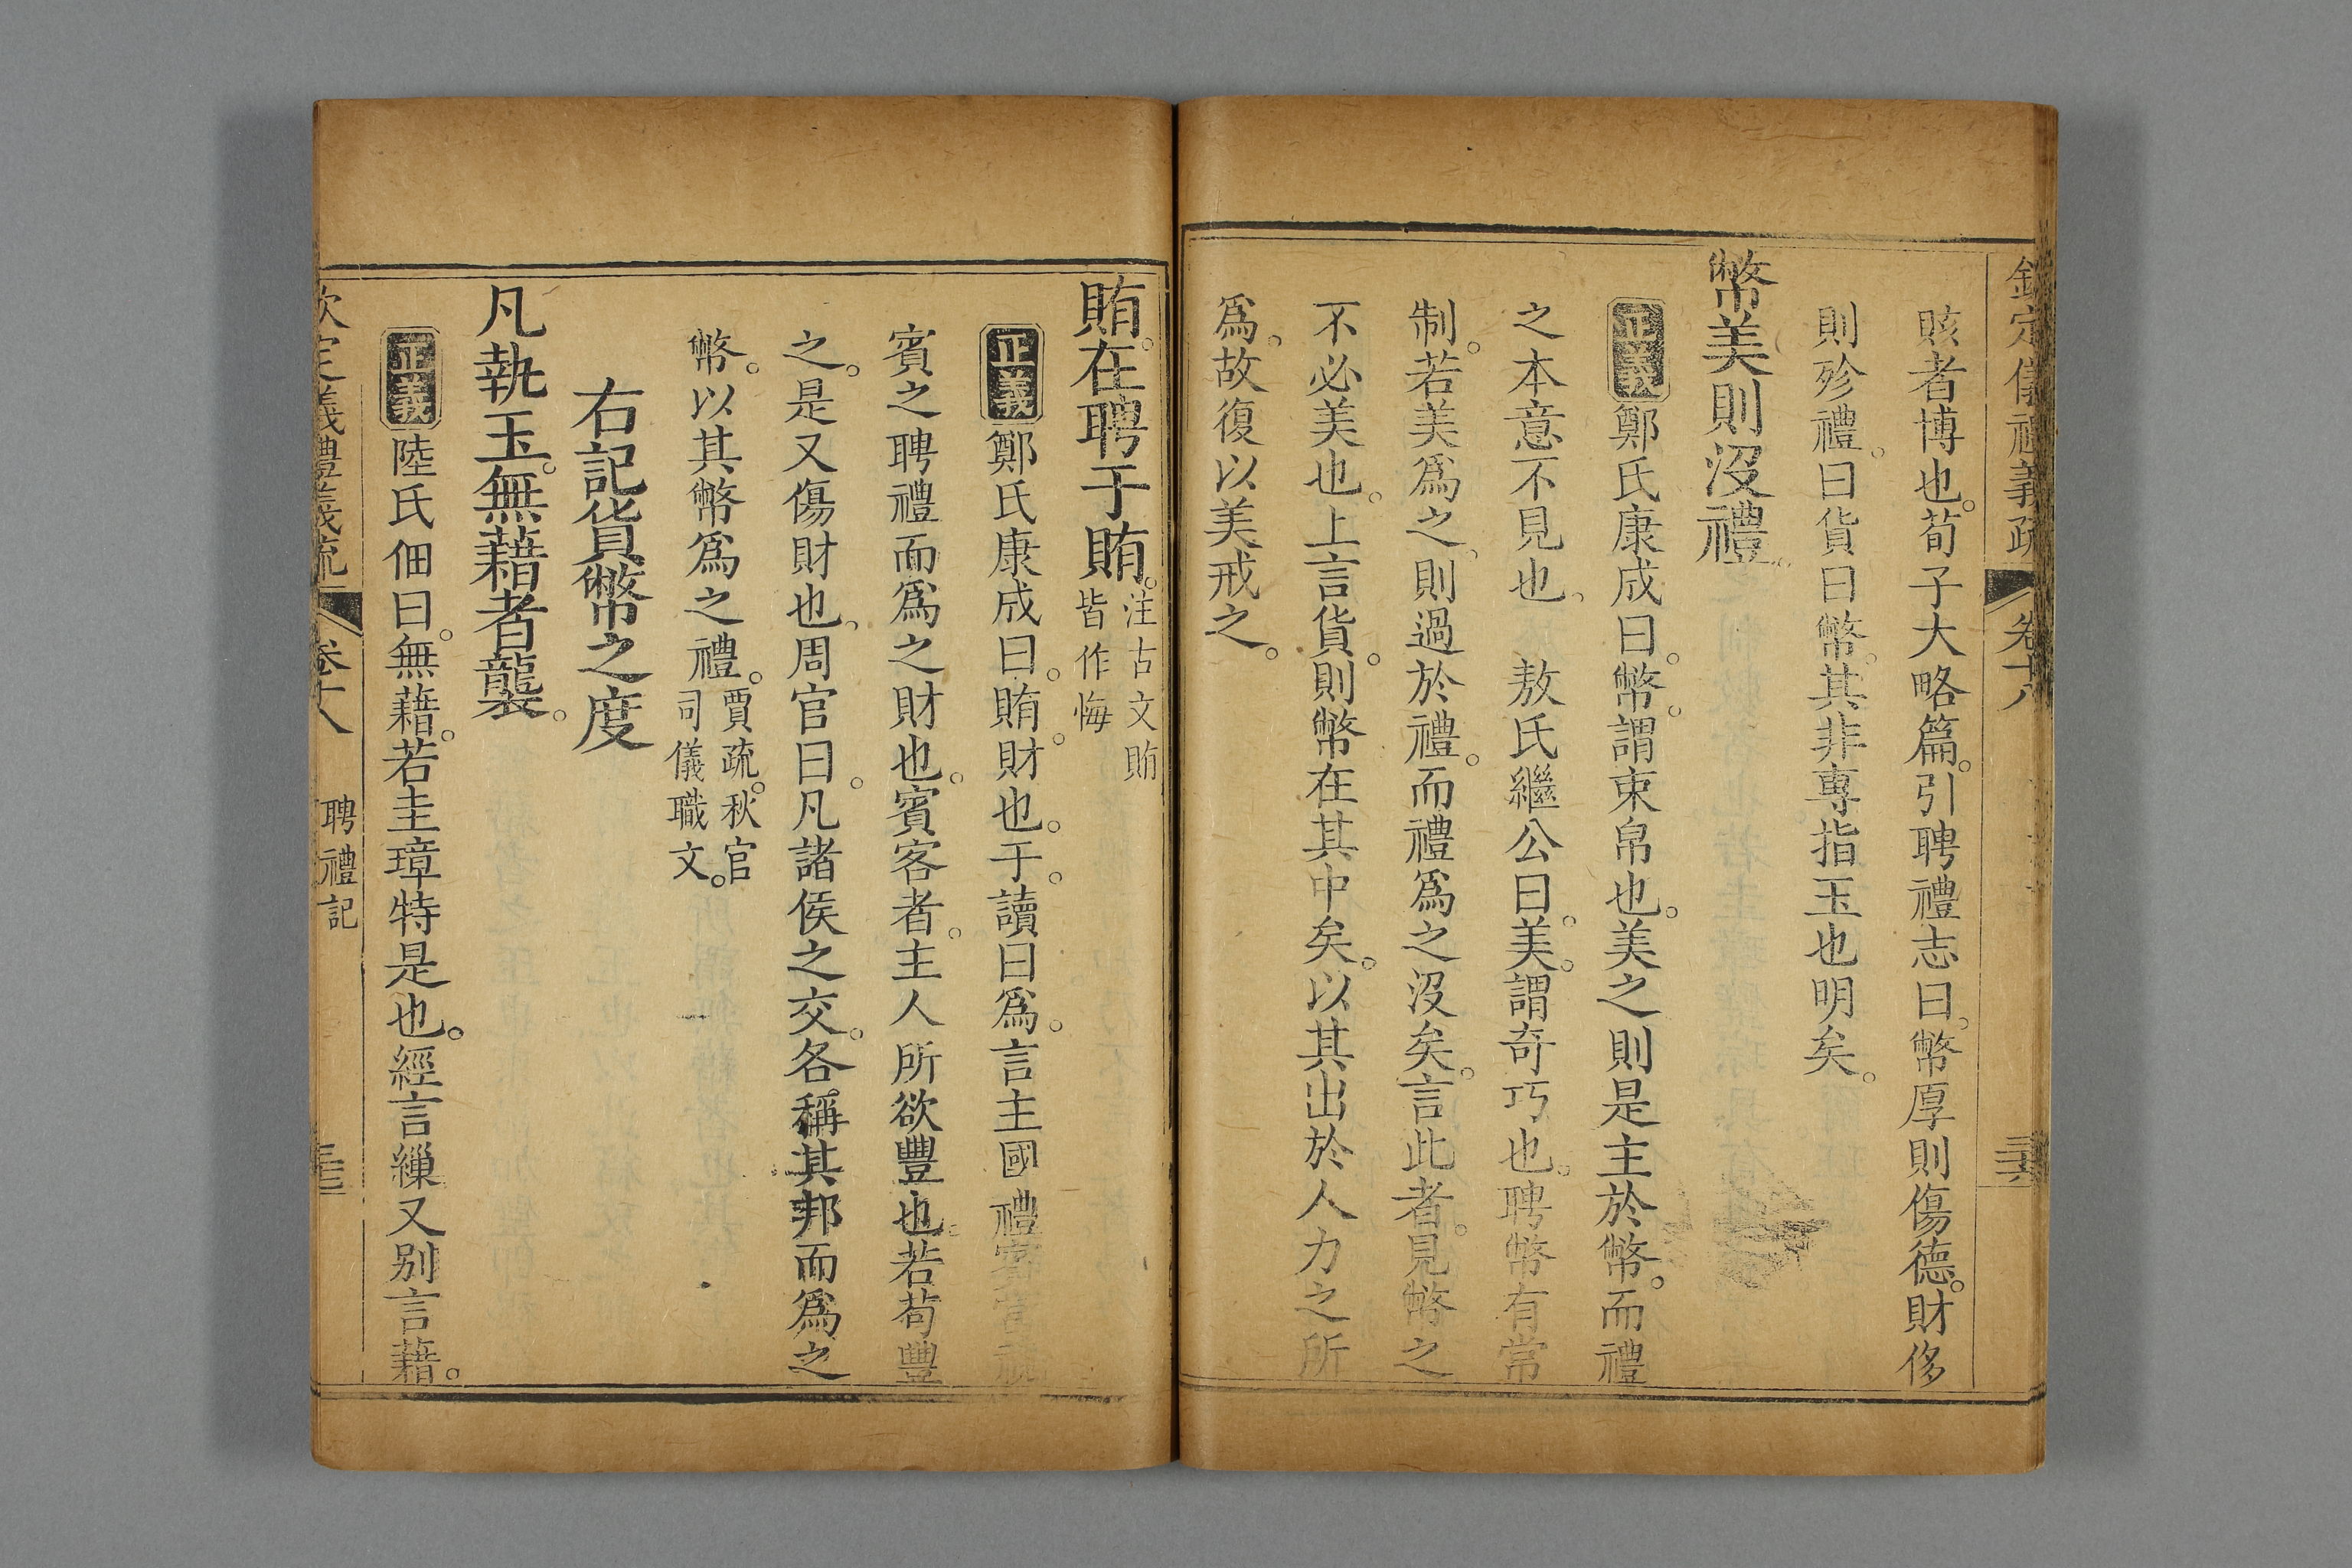 欽定儀禮義疏 卷十八
賅者博也。荀子大略篇。引聘禮志曰。幣厚則傷德。財侈
則殄禮。曰貨曰幣。其非專指玉也明矣。
幣美則沒禮。
正義 鄭氏康成曰。幣。謂束帛也。美之則是主於幣。而禮
之本意不見也。 敖氏繼公曰。美。謂奇巧也。聘幣有常
制。若美爲之。則過於禮。而禮爲之沒矣。言此者。見幣之
不必美也。上言貨。則幣在其中矣。以其出於人力之所
爲。故復以美戒之。
賄。在聘于賄。注古文賄
皆作悔
正義 鄭氏康成曰。賄。財也。于。讀曰爲。言主國禮賓當視
賓之聘禮而爲之財也。賓客者。主人所欲豐也。若苟豐
之。是又傷財也。周官曰。凡諸侯之交。各稱其邦而爲之
幣。以其幣爲之禮。賈疏。秋官
司儀職文。
右記貨幣之度
凡執玉。無藉者襲。
正義 陸氏佃曰。無藉。若圭璋特是也。經言繅又别言藉。
欽定義禮義疏 卷十八 聘禮記